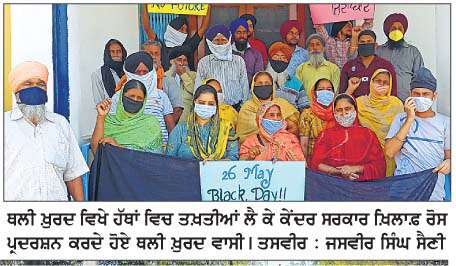 NO FUTURE
26 May
Black Day!!
ਥਲੀ ਖ਼ੁਰਦ ਵਿਖੇ ਹੱਥਾਂ ਵਿਚ ਤਖ਼ਤੀਆਂ ਲੈ ਕੇ ਕੇਂਦਰ ਸਰਕਾਰ ਖ਼ਿਲਾਫ਼ ਰੋਸ
ਪ੍ਰਦਰਸ਼ਨ ਕਰਦੇ ਹੋਏ ਥਲੀ ਖ਼ੁਰਦ ਵਾਸੀ। ਤਸਵੀਰ : ਜਸਵੀਰ ਸਿੰਘ ਸੈਣੀ